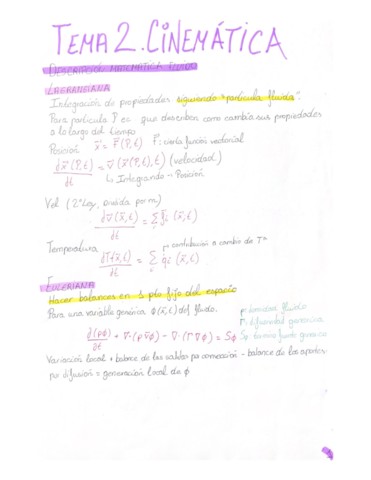 TEMA 2. CINEMÁTICA
DESCRIPCIÓN MATEMÁTICA FLUIDO
LAGRANGIANA
Integración de propiedades siguiendo "partícula fluida".
Para partícula P ec que describan como cambia sus propiedades
a lo largo del tiempo
Posición x⃗ = F⃗(P,t) F⃗: cierta función vectorial
dx⃗(P,t)/dt = v⃗(x⃗(P,t),t) (velocidad)
↳ Integrando → Posición
Vel (2ª Ley, dividida por m)
dv⃗(x⃗,t)/dt = Σᵢ f⃗ᵢ(x⃗,t)
Temperatura → contribución a cambio de Tª
dT(x⃗,t)/dt = Σᵢ q̇ᵢ(x⃗,t)
EULERIANA
Hacer balances en 1 pto fijo del espacio
Para una variable genérica ϕ(x⃗,t) del fluido.
ρ: densidad fluido
Γ: difusividad genérica
Sϕ: término fuente genérico
∂(ρϕ)/∂t + ∇·(ρv⃗ϕ) - ∇·(Γ∇ϕ) = Sϕ
Variación local + balance de las salidas por convección - balance de los aportes
por difusión = generación local de ϕ